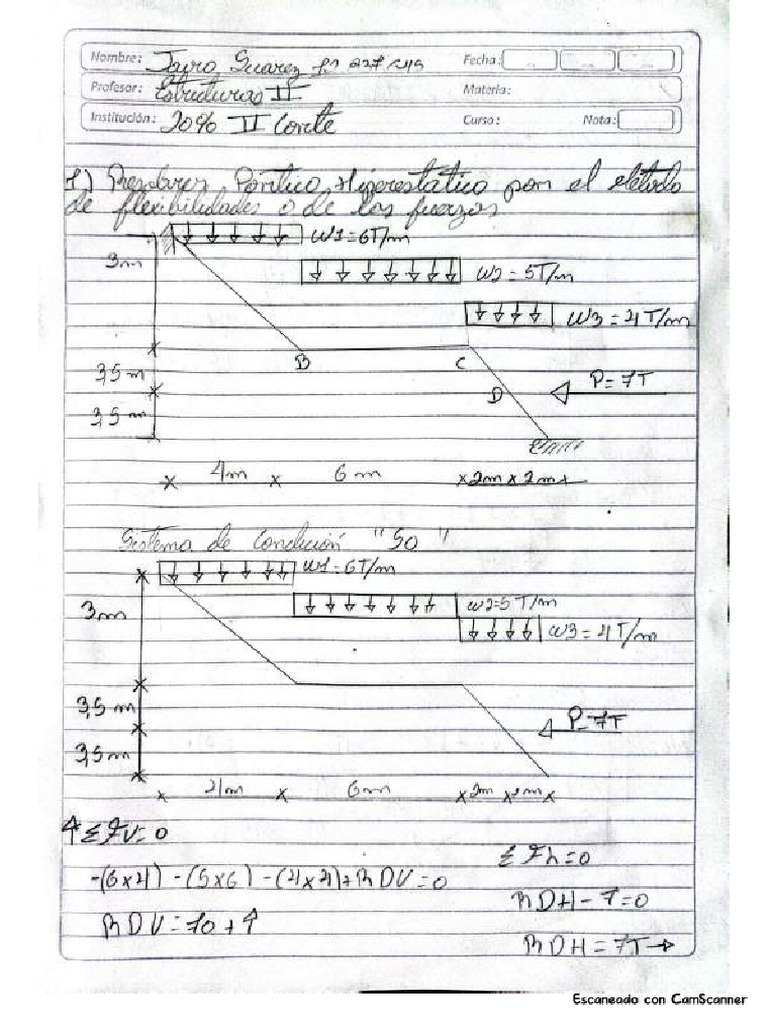 Nombre: Jairo Suarez
Fecha:
Profesor: Estructuras II
Materia:
Institución: 20% II Corte
Curso: Nota:
1) Resolver Pórtico Hiperestático por el método
de flexibilidades o de las fuerzas
W1=6T/m
3m
W2=5T/m
W3=4T/m
B C
3,5m D P=7T
3,5m
4m 6m 2m 2m
Sistema de condición "S0"
W1=6T/m
3m W2=5T/m
W3=4T/m
3,5m P=7T
3,5m
4m 6m 2m 2m
↑ΣFV=0
ΣFh=0
-(6x4)-(5x6)-(4x4)+RDV=0
RDH-7=0
RDV=70t↑
RDH=7T→
Escaneado con CamScanner